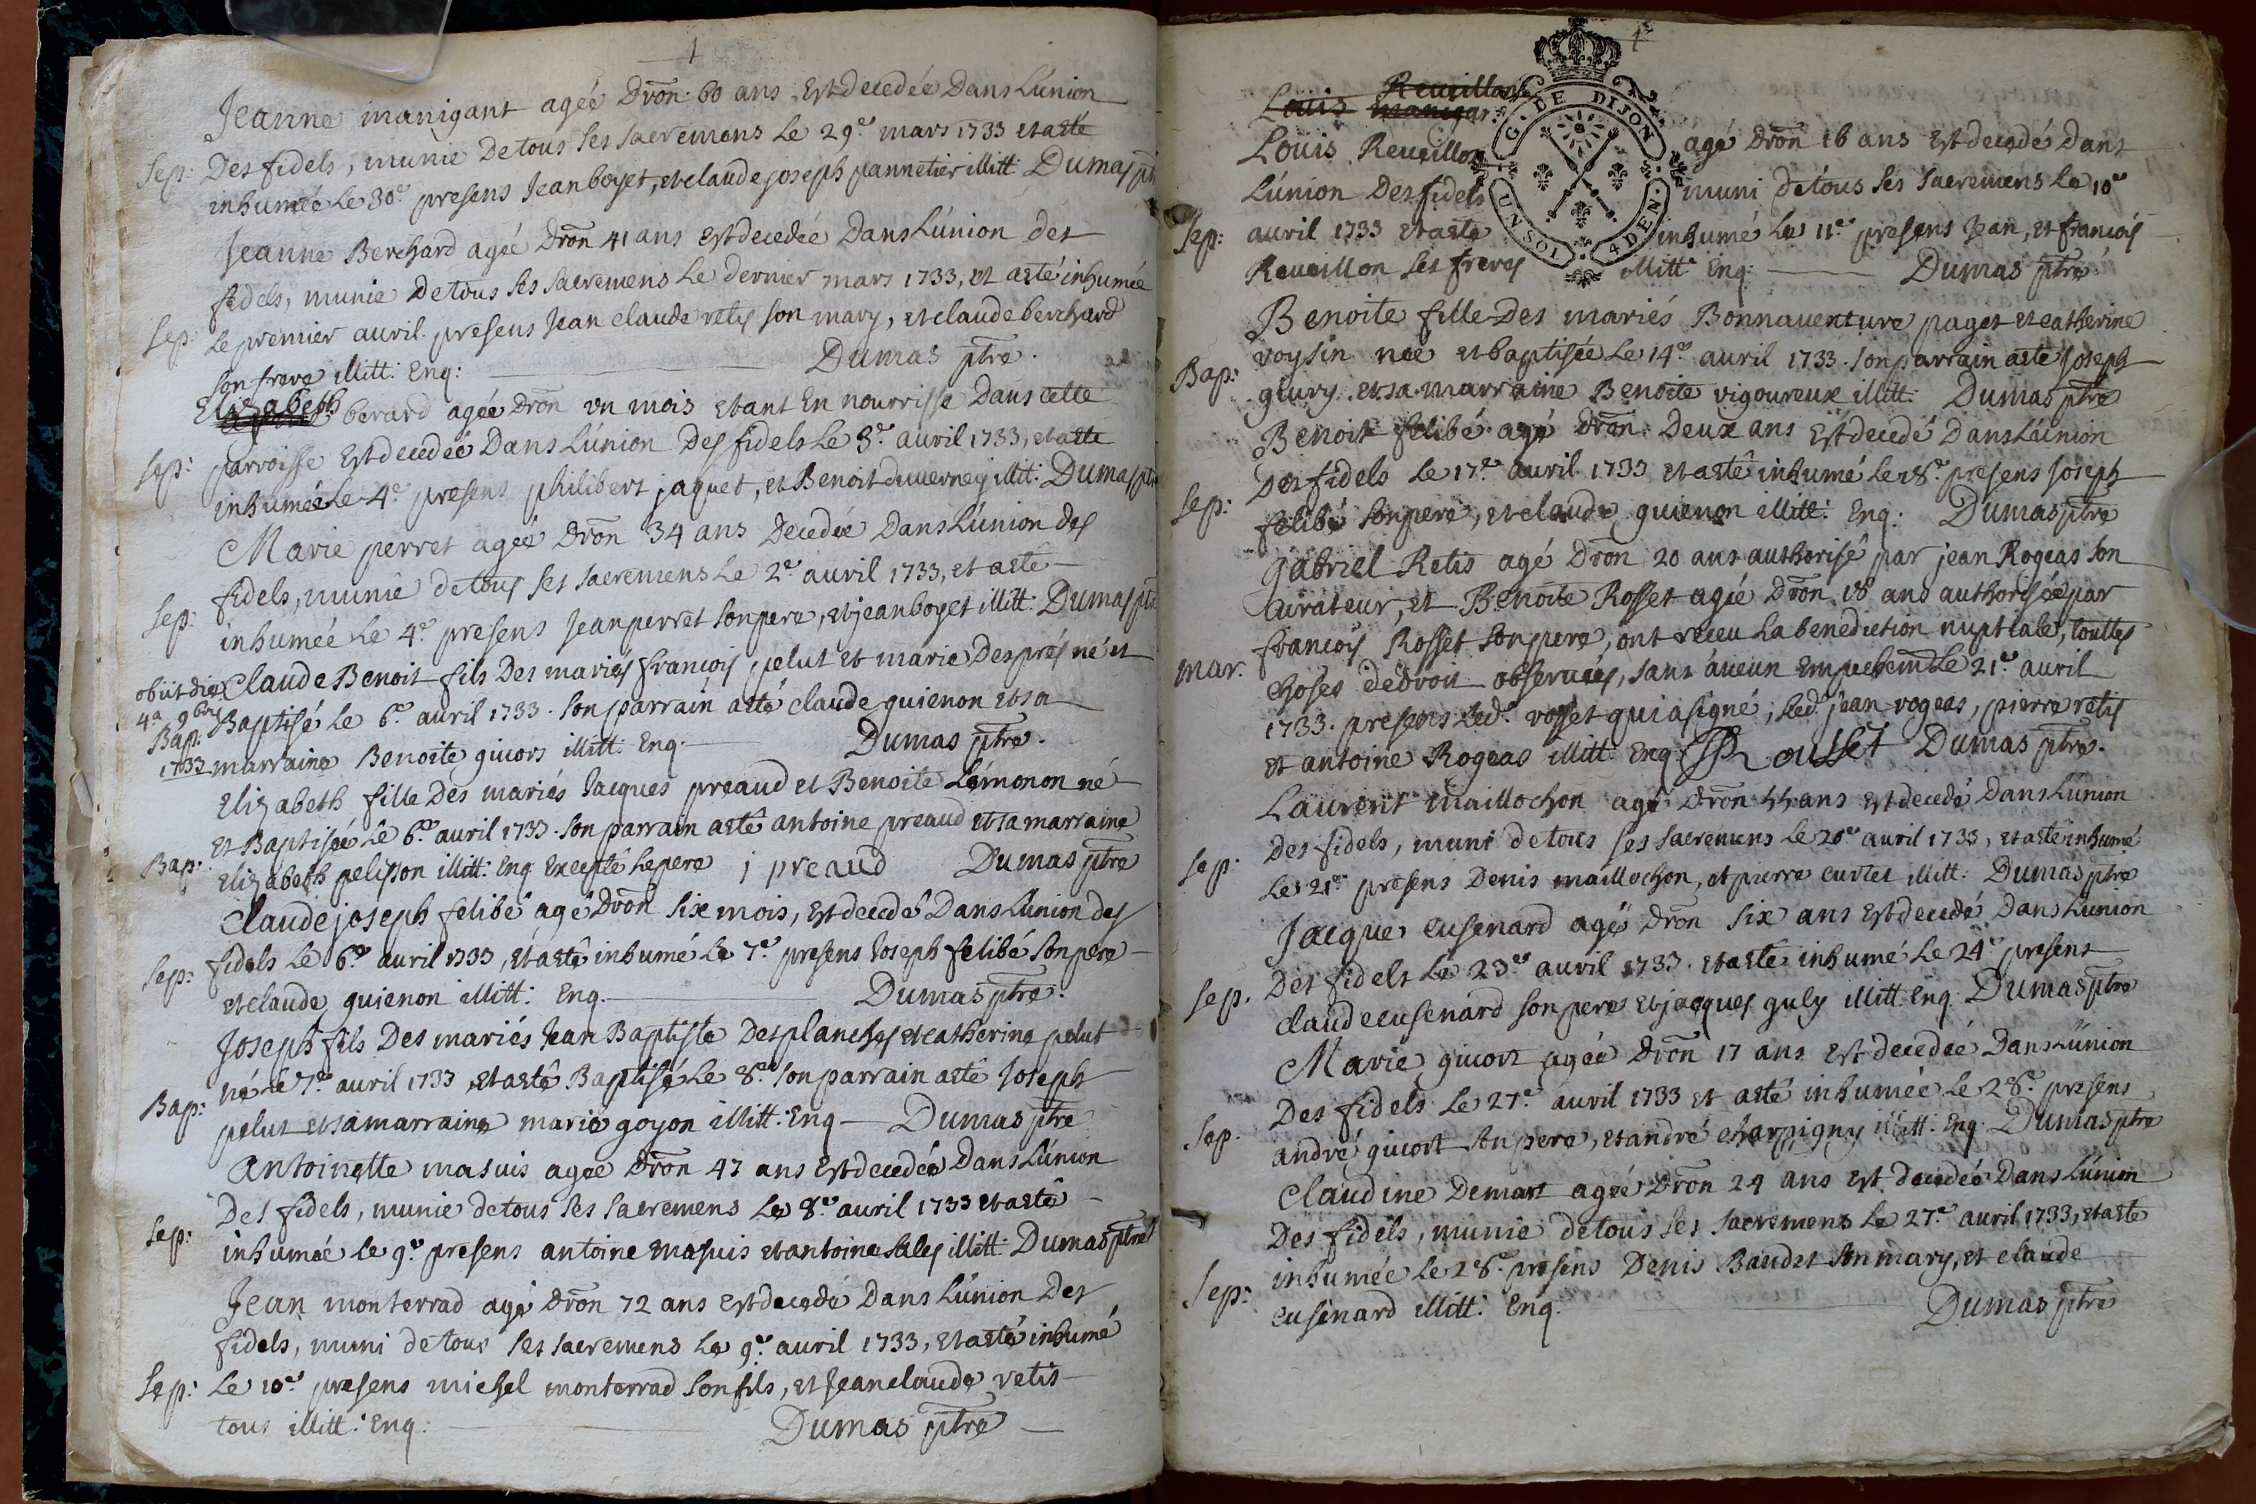 1
Jeanne manigant agée Dron 60 ans Est decedée Dans Lúnion
Sep: Des fidels, munie Detous ses sacremens Le 29e mars 1733 et aeté
inhumée Le 30e presens Jean boyet, et claude joseph pannetier illitt: Dumas ptre
Jeanne Berchard agée Dron 41 ans est decedée Dans Lúnion des
fidels, munie Detous ses sacremens Le dernier mars 1733, et aeté inhumée
Sep: Le premier avril presens Jean claude retis son mary, et claude berchard
son frere illitt: Enq: Dumas ptre.
Elizabeth bérard agée Dron un mois etant En nourrisse Dans cette
Sep: parroisse Est decedée Dans Lúnion Des fidels Le 3e avril 1733, et aeté
inhumée Le 4e presens philibert jaquet, et Benoit duverney illitt: Dumas ptre
Marie perret agée Dron 34 ans Decedée Dans Lúnion des
fidels, munie detous ses sacremens Le 2e avril 1733, et aeté
Sep: inhumée Le 4e presens Jean perret son pere, et jean boyet illitt: Dumas ptre
obiit die Claude Benoit fils Des mariés francois pelut et marie Després né et
4a 9bris Baptisé Le 6e avril 1733. son parrain aeté claude guienon et sa
Bap: 1733 marraine Benoite givors illitt: Enq. Dumas ptre.
Elizabeth fille Des mariés Jacques preaud et Benoite Lémonon né
Et Baptisée Le 6e avril 1733. son parrain aeté antoine preaud et sa marraine
Bap: Elizabeth pelisson illitt: Enq Excepté Le pere j preaud Dumas ptre
Claude joseph felibé agé Dron six mois, Est decedé Dans Lúnion des
Sep: fidels Le 6e avril 1733, et aeté inhumé Le 7e presens Joseph felibé son pere
et claude guienon illitt: Enq. Dumas ptre.
Joseph fils Des mariés Jean Baptiste Desplanches et catherine pelut
né Le 7e avril 1733, et aeté Baptisé Le 8e son parrain aeté Joseph
Bap: pelut et sa marraine marie goyon illitt: Enq Dumas ptre
Antoinette masuis agée Dron 47 ans Est decedée Dans Lúnion
Des fidels, munie detous ses sacremens Le 8e avril 1733 et aeté
Sep: inhumée Le 9e presens antoine masuis et antoine sales illitt: Dumas ptre
Jean monterrad agé Dron 72 ans Est decedé Dans Lúnion Des
fidels, muni de tous ses sacremens Le 9e avril 1733, Et aeté inhumé
Sep: Le 10e presens michel monterrad son fils, et Jean claude retis
tous illitt: Enq: Dumas ptre
1
Reveillon
Louis
G. DE DIJON
UN SOL 4 DEN.
Louis Reveillon agé Dron 16 ans Est decedé Dans
Lúnion Des fidels muni detous ses sacremens Le 10e
Sep: avril 1733 et aeté inhumé Le 11e presens Jean, et francois
Reveillon ses freres illitt: Enq: Dumas ptre.
Benoite fille Des mariés Bonnaventure paget et catherine
voysin née et baptisée Le 14e avril 1733. son parrain aeté Joseph
Bap: glury et sa marraine Benoite vigoureux illitt: Dumas ptre
Benoit felibé agé Dron Deux ans Est decedé Dans Lúnion
Des fidels Le 17e avril 1733 et aeté inhumé Le 18e presens Joseph
Sep: felibé son pere, et claude guienon illitt: Enq: Dumas ptre
Gabriel Retis agé Dron 20 ans authorisé par jean Rogeas son
curateur, et Benoite Rosset agée Dron 18 ans authorisée par
francois Rosset son pere, ont receu La benediction nuptiale, touttes
mar. choses dedroit observées, sans aucun Empechemt Le 21e avril
1733. presens Led. rosset qui a signé, Led. jean rogeas, pierre retis
et antoine Rogeas illitt: Enq. Rousset Dumas ptre.
Laurent maillochon agé Dron 55 ans Est decedé Dans Lúnion
Des fidels, muni de tous ses sacremens Le 20e avril 1733, et aeté inhumé
Sep: Le 21e presens Denis maillochon, et pierre curtet illitt: Dumas ptre
Jacque cusenard agé Dron six ans Est decedé Dans Lúnion
Des fidels Le 23e avril 1733. et aeté inhumé Le 24e presens
Sep. claude cusenard son pere et jacques guly illitt: Enq Dumas ptre
Marie givort agée Dron 17 ans Est decedée Dans Lúnion
Des fidels Le 27e avril 1733 et aeté inhumée Le 28e presens
Sep. andré givort son pere, et andré charpigny illitt: Enq Dumas ptre
Claudine Demart agée Dron 24 ans Est decedée Dans Lúnion
Des fidels, munie detous ses sacremens Le 27e avril 1733, et aeté
Sep: inhumée Le 28e presens Denis Baudet son mary, et claude
cusenard illitt: Enq. Dumas ptre